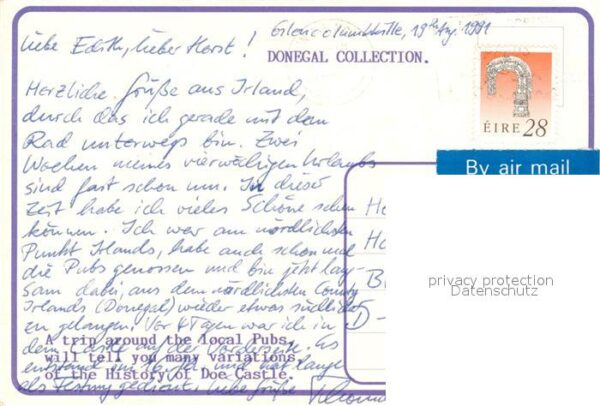 Glencolumbkille, 19th Aug. 1991
Liebe Edith, lieber Horst!
DONEGAL COLLECTION.
ÉIRE 28
By air mail
Herzliche Grüße aus Irland,
durch das ich gerade mit dem
Rad unterwegs bin. Zwei
Wochen meines vierwöchigen Urlaubs
sind fast schon um. In dieser
Zeit habe ich vieles Schöne sehen
können. Ich war am nördlichsten
Punkt Irlands, habe auch schon mal
die Pubs genossen und bin jetzt lang-
sam dabei, aus dem nördlichsten County
Irlands (Donegal) wieder etwas südlicher
zu gelangen. Vor 4 Tagen war ich in
dem Castle auf der Vorderseite. Es
entstand im 16. Jh. und hat lange
als Festung gedient. Liebe Grüße
A trip around the local Pubs,
will tell you many variations
of the History of Doe Castle.
D-
privacy protection
Datenschutz